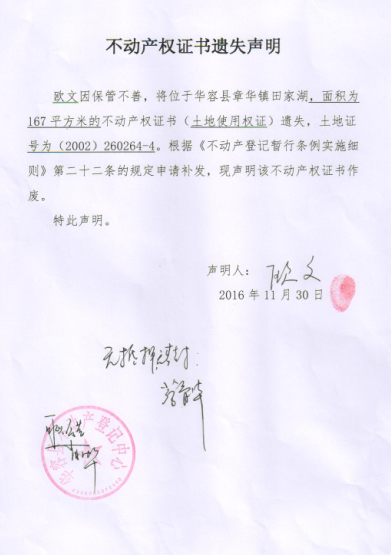 不动产权证书遗失声明
欧文因保管不善，将位于华容县章华镇田家湖，面积为
167平方米的不动产权证书（土地使用权证）遗失，土地证
号为（2002）260264-4。根据《不动产登记暂行条例实施细
则》第二十二条的规定申请补发，现声明该不动产权证书作
废。
特此声明。
声明人：欧文
2016年11月30日
无抵押
产登记中心